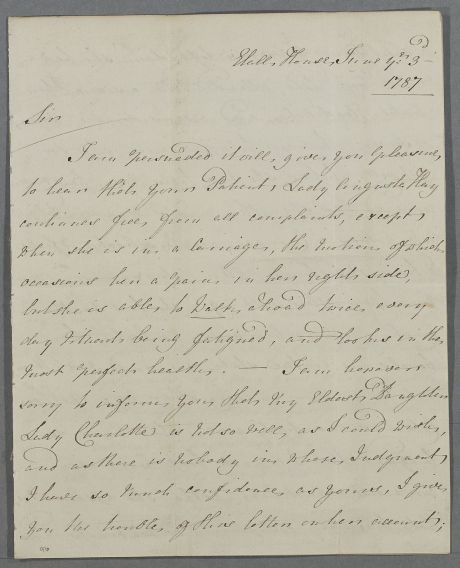 House, June ye 3d
1787
Sir
I am persuaded it will, give you pleasure,
to hear that your Patient, Lady Augusta Hay
continues free, from all complaints, except,
when she is in a Carriage, the motion of which
occasions her a pain in her right side,
but she is able, to Walk, abroad twice every
day without being fatigued, and looks in the
most perfect health. — I am however
sorry to inform, you that my Eldest Daughter
Lady Charlotte is not so well, as I could wish,
and as there is nobody in whose, Judgment,
I have so much confidence, as yours, I give
you the trouble, of this letter on her account;